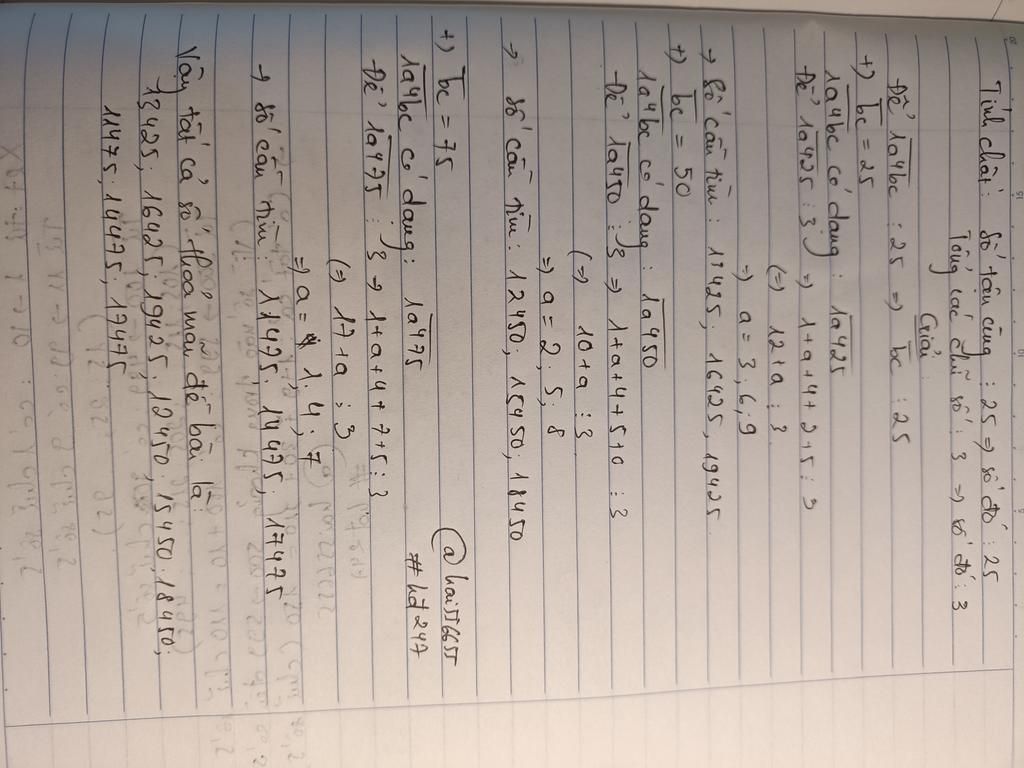 Tính chất: Số tận cùng ⋮ 25 => số đó ⋮ 25
Tổng các chữ số ⋮ 3 => số đó ⋮ 3
Giải:
Để 1a4bc ⋮ 25 => bc ⋮ 25
+) bc = 25
1a4bc có dạng: 1a425
Để 1a425 ⋮ 3 => 1+a+4+2+5 ⋮ 3
(=) 12+a ⋮ 3
=> a = 3; 6; 9
→ Số cần tìm: 13425; 16425; 19425
+) bc = 50
1a4bc có dạng: 1a450
Để 1a450 ⋮ 3 => 1+a+4+5+0 ⋮ 3
(=) 10+a ⋮ 3
=> a = 2; 5; 8
→ số cần tìm: 12450; 15450; 18450
@hai556655
+) bc = 75
#hd247
1a4bc có dạng: 1a475
Để 1a475 ⋮ 3 → 1+a+4+7+5 ⋮ 3
(=) 17+a ⋮ 3
=> a = 1; 4; 7
→ số cần tìm: 11475; 14475; 17475
Vậy tất cả số thỏa mãn đề bài là:
13425; 16425; 19425; 12450; 15450; 18450;
11475; 14475; 17475